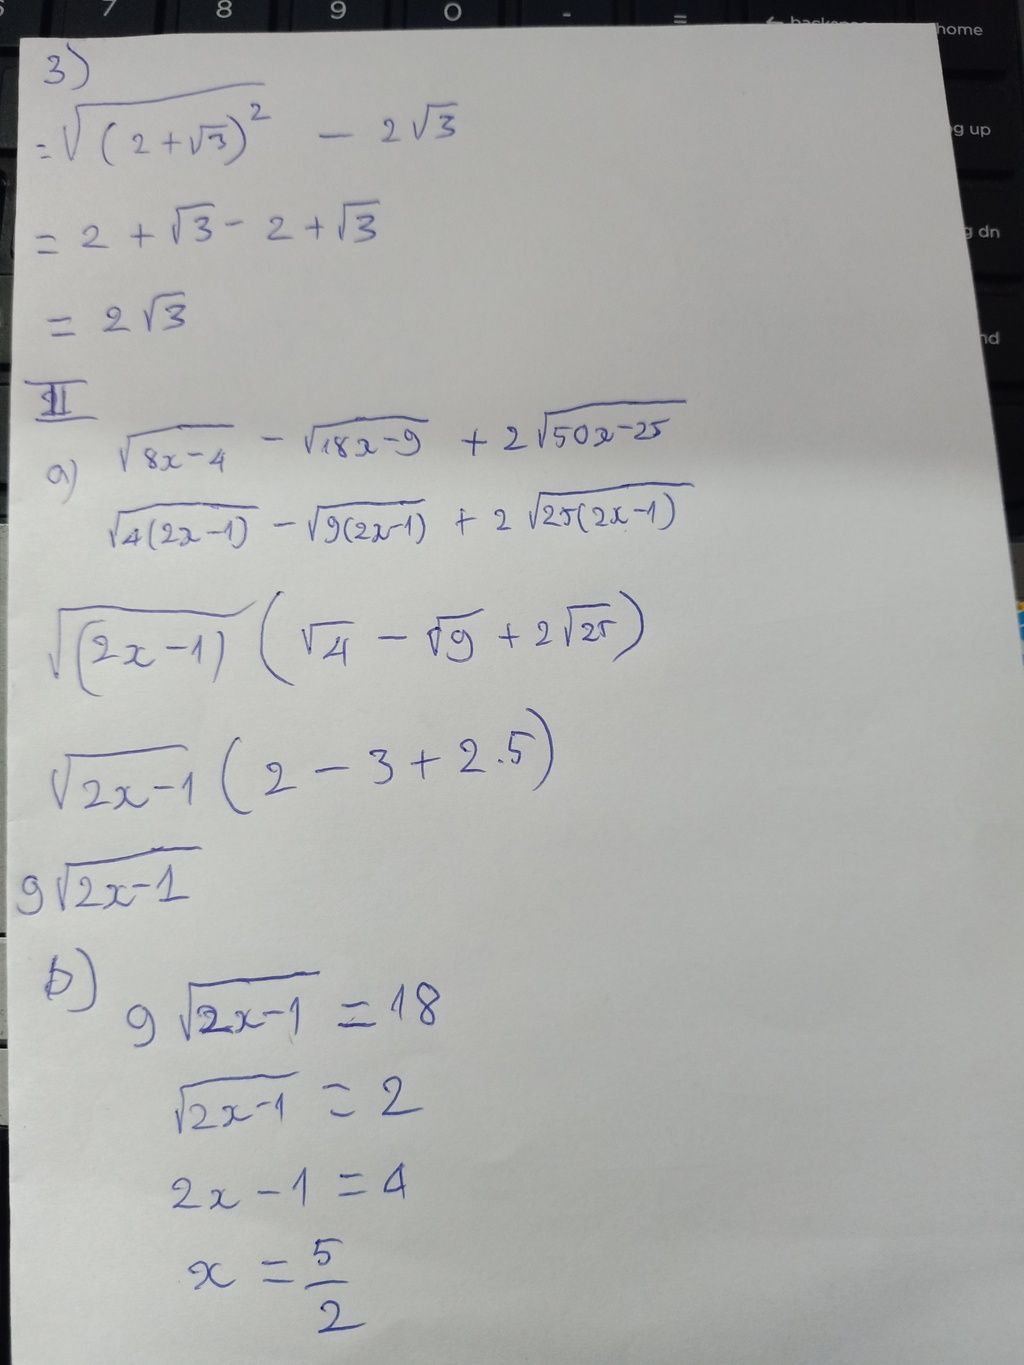 7 8 9 0 - = backspace home
3)
= √(2+√3)² - 2√3
pg up
= 2 + √3 - 2 + √3
pg dn
= 2√3
II
a) √8x-4 - √18x-9 + 2√50x-25
√4(2x-1) - √9(2x-1) + 2√25(2x-1)
√(2x-1) (√4 - √9 + 2√25)
√2x-1 (2 - 3 + 2.5)
9√2x-1
b)
9√2x-1 = 18
√2x-1 = 2
2x - 1 = 4
x = 5/2